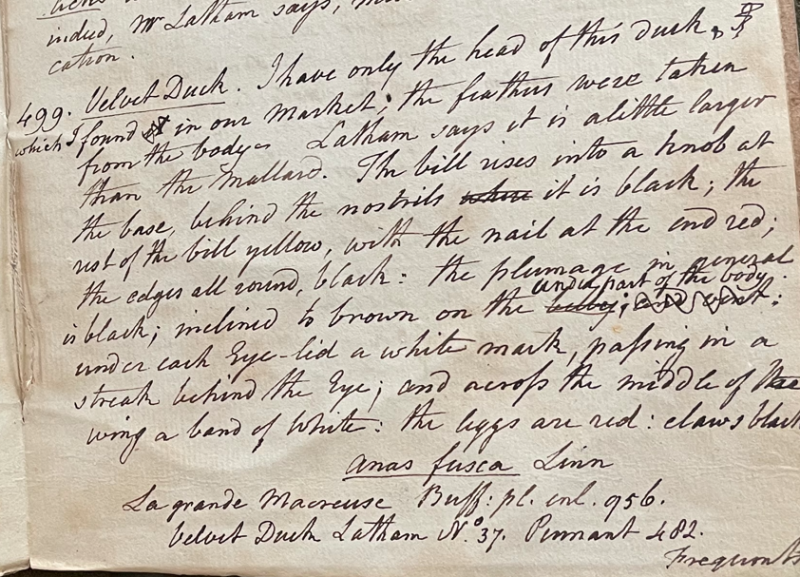 indeed, Mr Latham says,
cation.
499. Velvet Duck. I have only the head of this duck,
which I found in our market; the feathers were taken
from the body. Latham says it is a little larger
than the Mallard. The bill rises into a knob at
the base, behind the nostrils where it is black; the
rest of the bill yellow, with the nail at the end red;
the edges all round, black: the plumage in general
is black; inclined to brown on the belly; and vent: under part of the body.
under each Eye-lid a white mark, passing in a
streak behind the Eye; and across the middle of the
wing a band of White: the leggs are red: claws black
Anas fusca Linn
La grande Macreuse Buff: pl. enl. 956.
Velvet Duck Latham No. 37. Pennant 482.
Frequents